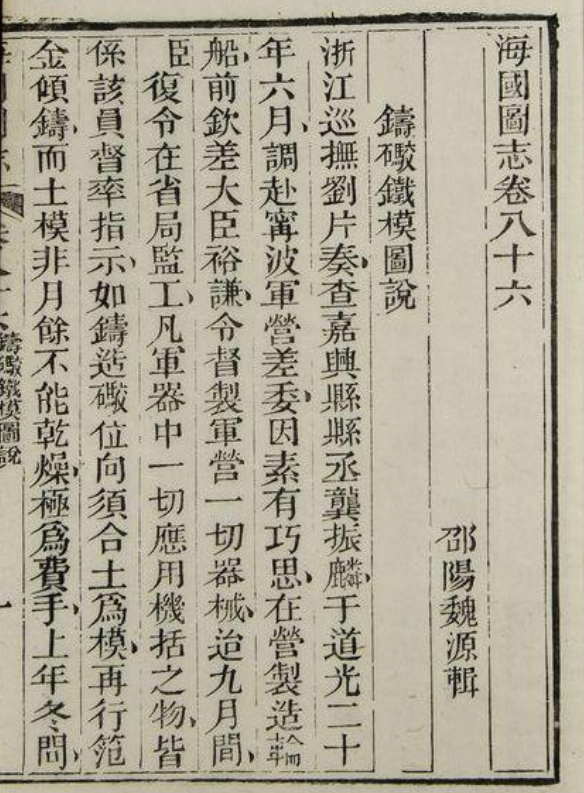 海國圖志卷八十六
邵陽魏源輯
鑄礮鐵模圖說
浙江巡撫劉片奏查嘉興縣縣丞龔振麟于道光二十
年六月調赴甯波軍營差委因素有巧思在營製造輪
船前欽差大臣裕謙令督製軍營一切器械迨九月間
臣復令在省局監工凡軍器中一切應用機括之物皆
係該員督率指示如鑄造礮位向須合土爲模再行范
金傾鑄而土模非月餘不能乾燥極爲費手上年冬間
鑄礮鐵模圖說